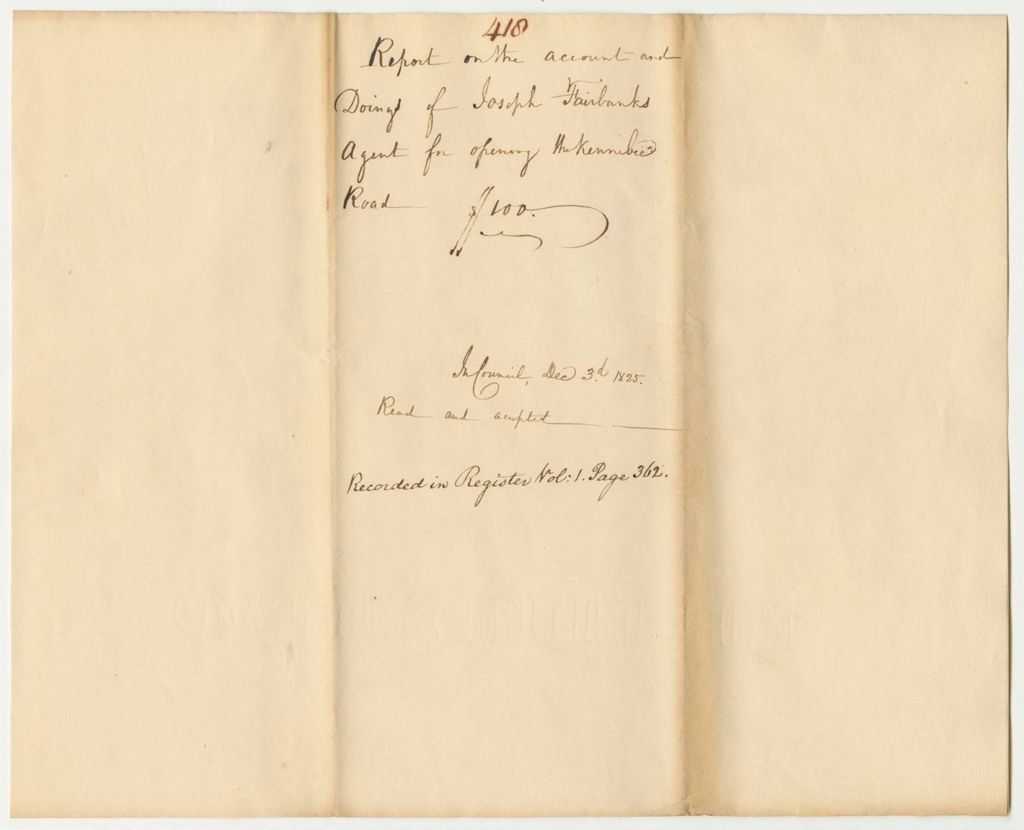 418
Report on the account and
Doings of Joseph Fairbanks
Agent for opening the Kennebec
Road $100.
In Council, Dec 3.d 1825.
Read and accepted
Recorded in Register Vol: 1. Page 362.